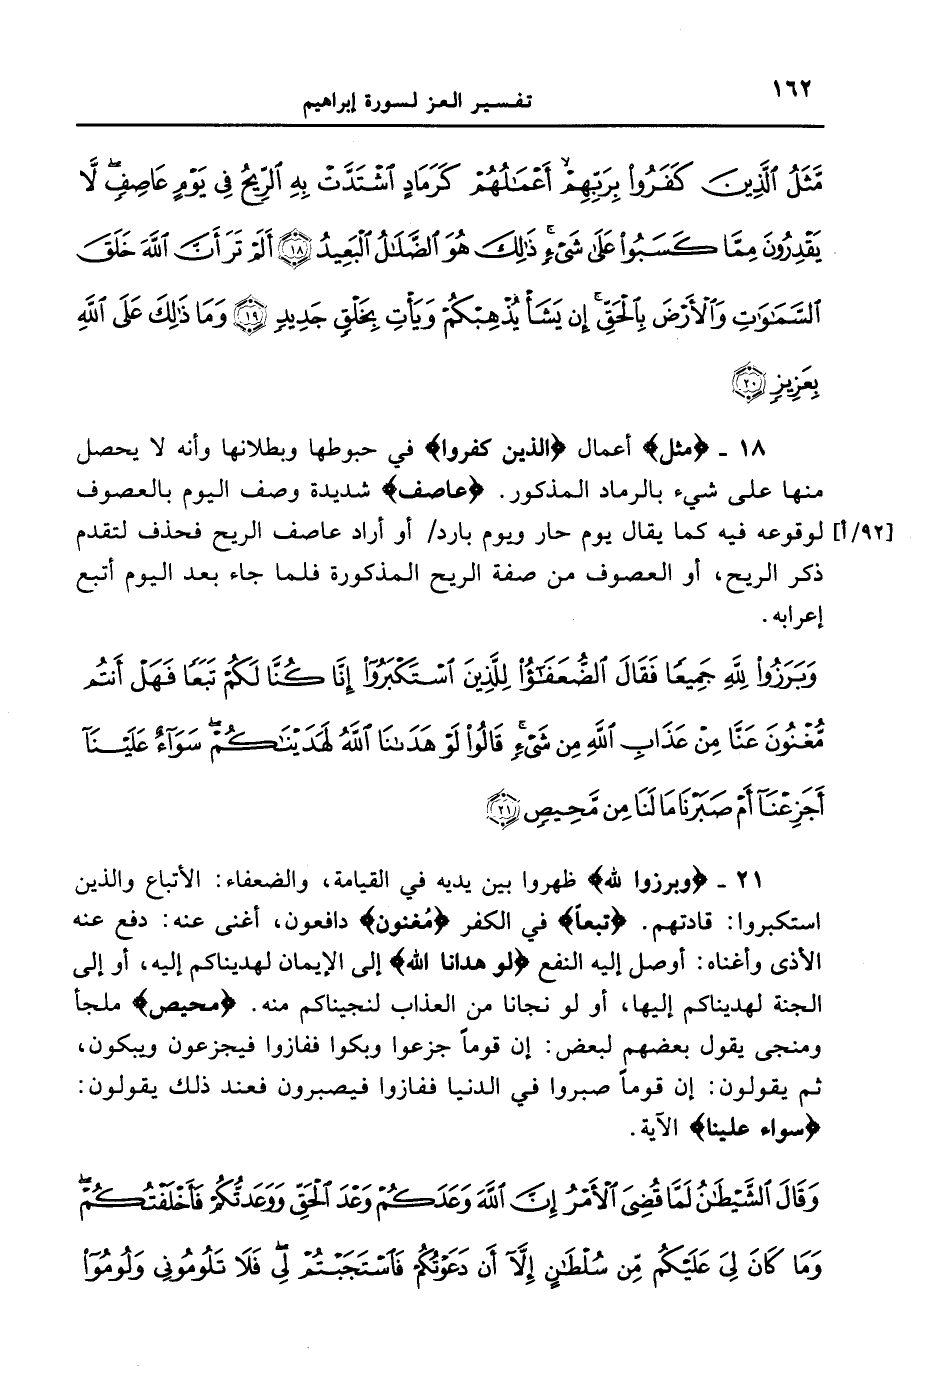 ١٦٢
تفسير العز لسورة إبراهيم
مَّثَلُ ٱلَّذِينَ كَفَرُوا۟ بِرَبِّهِمْ ۖ أَعْمَـٰلُهُمْ كَرَمَادٍ ٱشْتَدَّتْ بِهِ ٱلرِّيحُ فِى يَوْمٍ عَاصِفٍ ۖ لَّا
يَقْدِرُونَ مِمَّا كَسَبُوا۟ عَلَىٰ شَىْءٍ ۚ ذَٰلِكَ هُوَ ٱلضَّلَـٰلُ ٱلْبَعِيدُ ﴿١٨﴾ أَلَمْ تَرَ أَنَّ ٱللَّهَ خَلَقَ
ٱلسَّمَـٰوَٰتِ وَٱلْأَرْضَ بِٱلْحَقِّ ۚ إِن يَشَأْ يُذْهِبْكُمْ وَيَأْتِ بِخَلْقٍ جَدِيدٍ ﴿١٩﴾ وَمَا ذَٰلِكَ عَلَى ٱللَّهِ
بِعَزِيزٍ ﴿٢٠﴾
١٨ ـ ﴿مثل﴾ أعمال ﴿الذين كفروا﴾ في حبوطها وبطلانها وأنه لا يحصل
منها على شيء بالرماد المذكور. ﴿عاصف﴾ شديدة وصف اليوم بالعصوف
[٩٢/أ] لوقوعه فيه كما يقال يوم حار ويوم بارد/ أو أراد عاصف الريح فحذف لتقدم
ذكر الريح، أو العصوف من صفة الريح المذكورة فلما جاء بعد اليوم أتبع
إعرابه.
وَبَرَزُوا۟ لِلَّهِ جَمِيعًا فَقَالَ ٱلضُّعَفَـٰٓؤُا۟ لِلَّذِينَ ٱسْتَكْبَرُوٓا۟ إِنَّا كُنَّا لَكُمْ تَبَعًا فَهَلْ أَنتُم
مُّغْنُونَ عَنَّا مِنْ عَذَابِ ٱللَّهِ مِن شَىْءٍ ۚ قَالُوا۟ لَوْ هَدَىٰنَا ٱللَّهُ لَهَدَيْنَـٰكُمْ ۖ سَوَآءٌ عَلَيْنَآ
أَجَزِعْنَآ أَمْ صَبَرْنَا مَا لَنَا مِن مَّحِيصٍ ﴿٢١﴾
٢١ ـ ﴿وبرزوا لله﴾ ظهروا بين يديه في القيامة، والضعفاء: الأتباع والذين
استكبروا: قادتهم. ﴿تبعاً﴾ في الكفر ﴿مُغنون﴾ دافعون، أغنى عنه: دفع عنه
الأذى وأغناه: أوصل إليه النفع ﴿لو هدانا الله﴾ إلى الإيمان لهديناكم إليه، أو إلى
الجنة لهديناكم إليها، أو لو نجانا من العذاب لنجيناكم منه. ﴿محيص﴾ ملجأ
ومنجى يقول بعضهم لبعض: إن قوماً جزعوا وبكوا ففازوا فيجزعون ويبكون،
ثم يقولون: إن قوماً صبروا في الدنيا ففازوا فيصبرون فعند ذلك يقولون:
﴿سواء علينا﴾ الآية.
وَقَالَ ٱلشَّيْطَـٰنُ لَمَّا قُضِىَ ٱلْأَمْرُ إِنَّ ٱللَّهَ وَعَدَكُمْ وَعْدَ ٱلْحَقِّ وَوَعَدتُّكُمْ فَأَخْلَفْتُكُمْ ۖ
وَمَا كَانَ لِىَ عَلَيْكُم مِّن سُلْطَـٰنٍ إِلَّآ أَن دَعَوْتُكُمْ فَٱسْتَجَبْتُمْ لِى ۖ فَلَا تَلُومُونِى وَلُومُوٓا۟